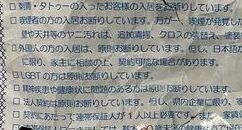 □ 刺青・タトゥーの入ったお客様の入居をお断りしています。
□ 喫煙者の方の入居お断りしています。万が一、喫煙が発覚した
壁や天井等のヤニ汚れは、追加清掃、クロスの張替え、塗装
□ 外国人の方の入居は、原則お断りしています。但し、日本語
に限り、家主に相談の上、契約可能な場合があります。
□ LGBTの方は原則お断りしています。
健康状に問題のある方は原則お断りしています
□ 法人契約は原則お断りしています。但し、県内企業に限り、
□ 契約にあたって連帯保証人が1人以上必要です。また、